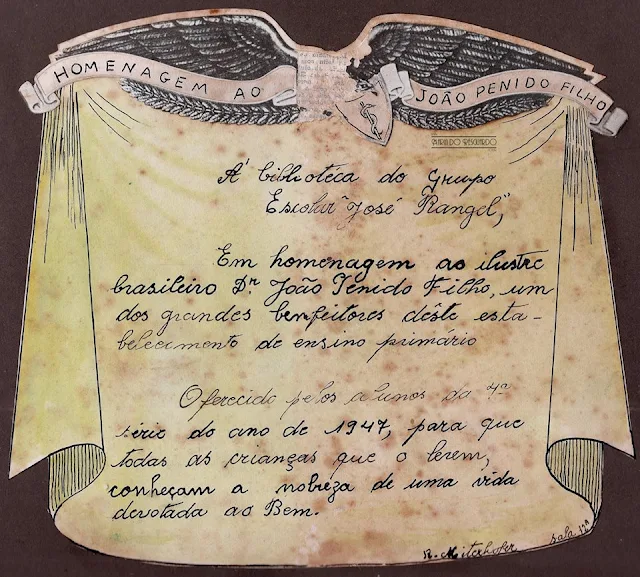 HOMENAGEM AO
JOÃO PENIDO FILHO
À biblioteca do Grupo
Escolar "José Rangel",
Em homenagem ao ilustre
brasileiro Dr. João Penido Filho, um
dos grandes benfeitores dêste esta-
belecimento de ensino primário
Oferecido pelos alunos da 4ª
série do ano de 1947, para que
todas as crianças que o lerem,
conheçam a nobreza de uma vida
devotada ao Bem.
sala 12ª